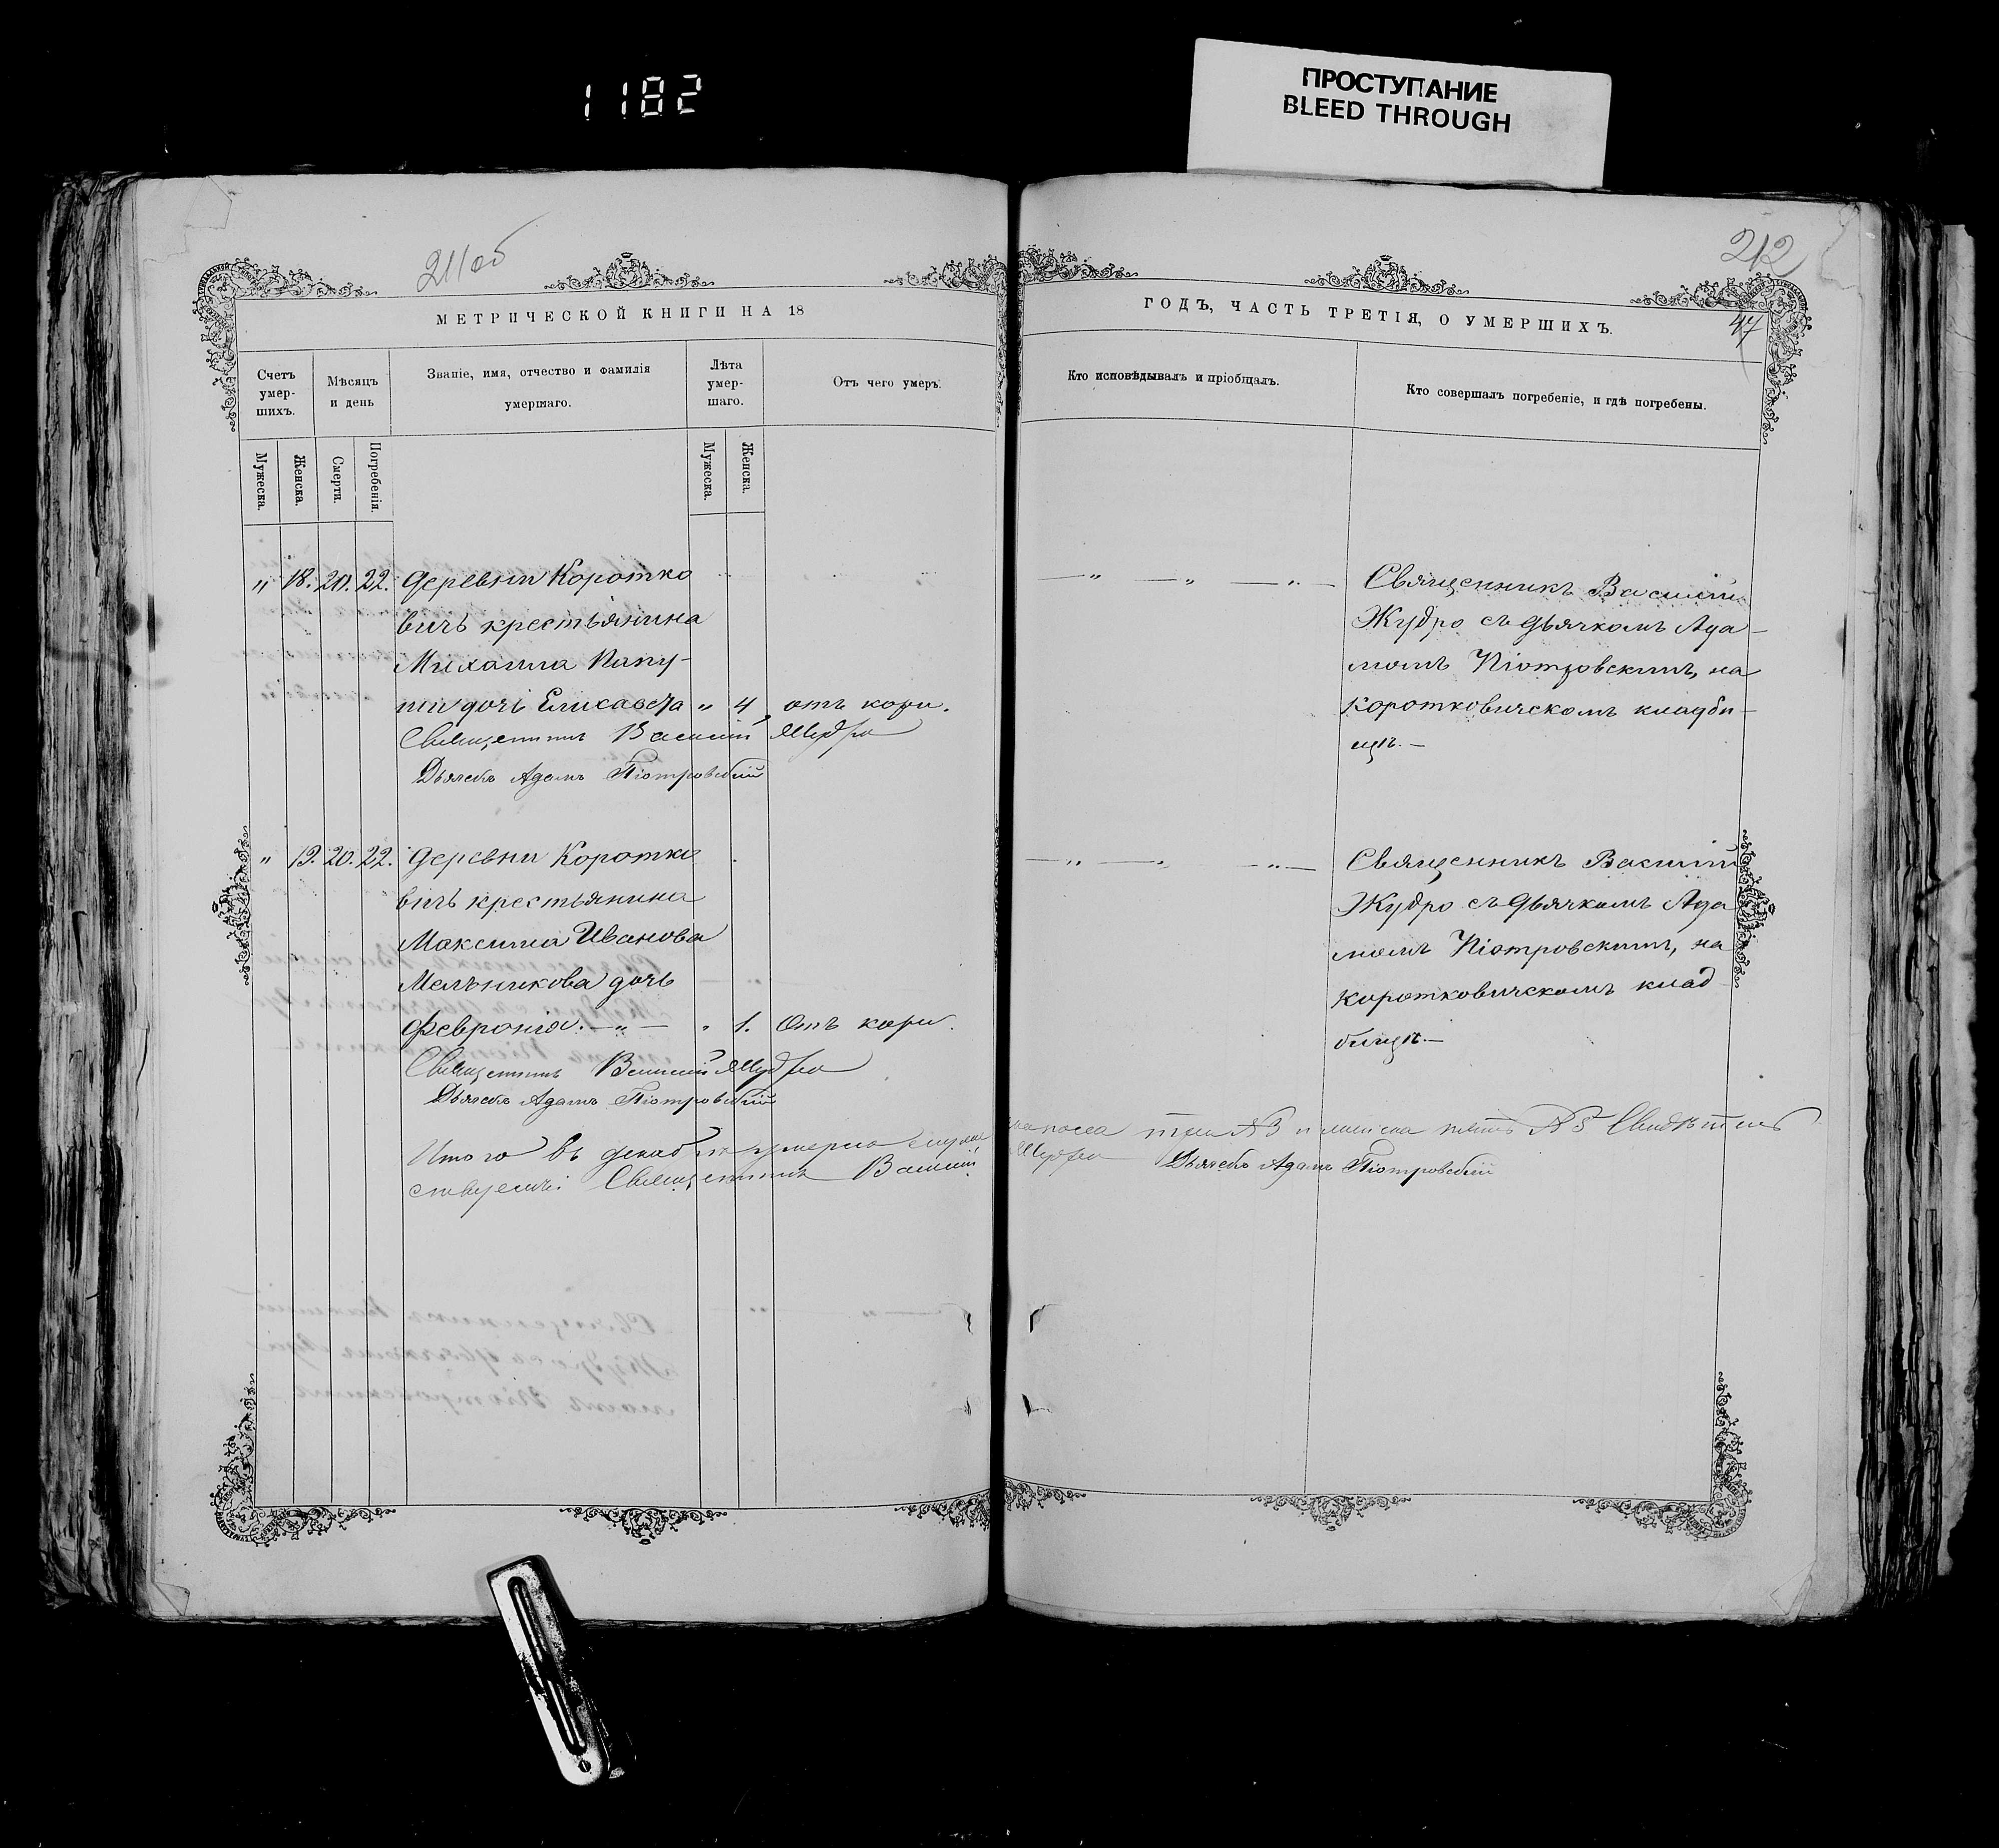 1182
ПРОСТУПАНИЕ
BLEED THROUGH
211об
МЕТРИЧЕСКОЙ КНИГИ НА 18
Счетъ умер-шихъ.
Мѣсяцъ и день
Званіе, имя, отчество и фамилія умершаго.
Лѣта умер-шаго.
Отъ чего умеръ.
Мужеска.
Женска.
Смерти.
Погребенія.
Мужеска.
Женска.
„ 18. 20. 22. Деревни Коротко
вичъ крестьянина
Михаила
дочь Елисавета „ 4 отъ кори.
Священникъ Василий Жудро
Дьячекъ Адамъ Піотровскій
„ 19. 20. 22. Деревни Коротко
вичъ крестьянина
Максима Иванова
Мельникова дочь
Февронія. — „ — „ 1. Отъ кори.
Священникъ Василий Жудро
Дьячекъ Адамъ Піотровскій
Итого въ декабрѣ умерло
Священникъ Василий
212
47
ГОДЪ, ЧАСТЬ ТРЕТІЯ, О УМЕРШИХЪ.
Кто исповѣдывалъ и пріобщалъ.
Кто совершалъ погребеніе, и гдѣ погребены.
— „ — „ — „ — Священникъ Василій
Жудро съ дьячкомъ Ада-
момъ Піотровскимъ, на
Коротковичскомъ кладби-
щѣ. —
— „ — „ — „ — Священникъ Василій
Жудро съ дьячкомъ Ада
момъ Піотровскимъ, на
Коротковичскомъ клад
бищѣ. —
пола три №3 и женска пять №5
Жудро Дьячекъ Адамъ Піотровскій